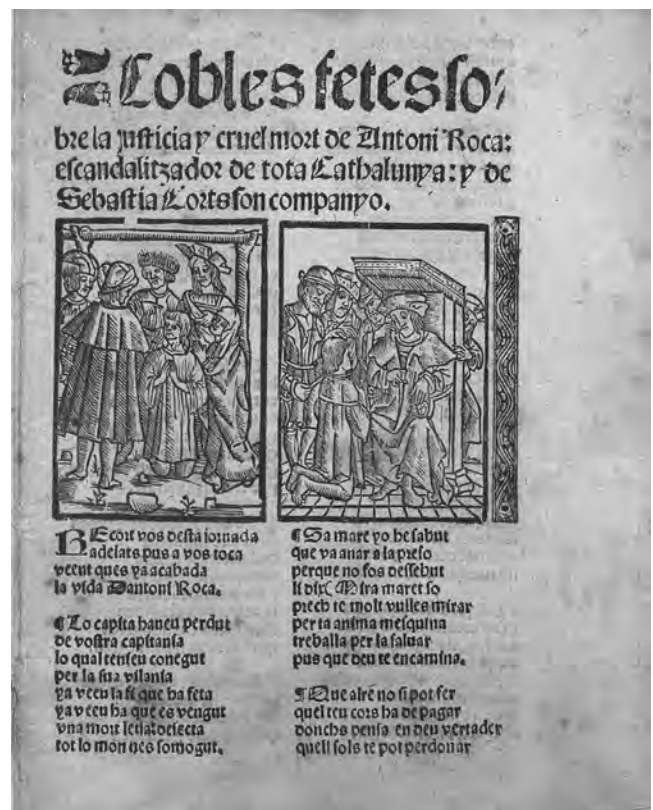 Cobles fetes so/
bre la justicia y cruel mort de Antoni Roca:
escandalitzador de tota Cathalunya: y de
Sebastia Corts son companyo.
REcort vos desta jornada
adelats pus a vos toca
veent ques ya acabada
la vida Dantoni Roca.
¶ Lo capita haueu perdut
de vostra capitania
lo qual tenieu conegut
per la sua vilania
ya veeu la fi que ha feta
ya veeu ha que es vengut
vna mort leia: desecta
tot lo mon nes somogut.
¶ Sa mare yo he sabut
que va anar a la preso
perque no fos dessebut
li dix( Mira maret so
prech te molt vulles mirar
per ta anima mesquina
treballa per la saluar
pus que deu te encamina.
¶ Que alre no si pot fer
quel teu cors ha de pagar
donchs pensa en deu vertader
quell sols te pot perdonar